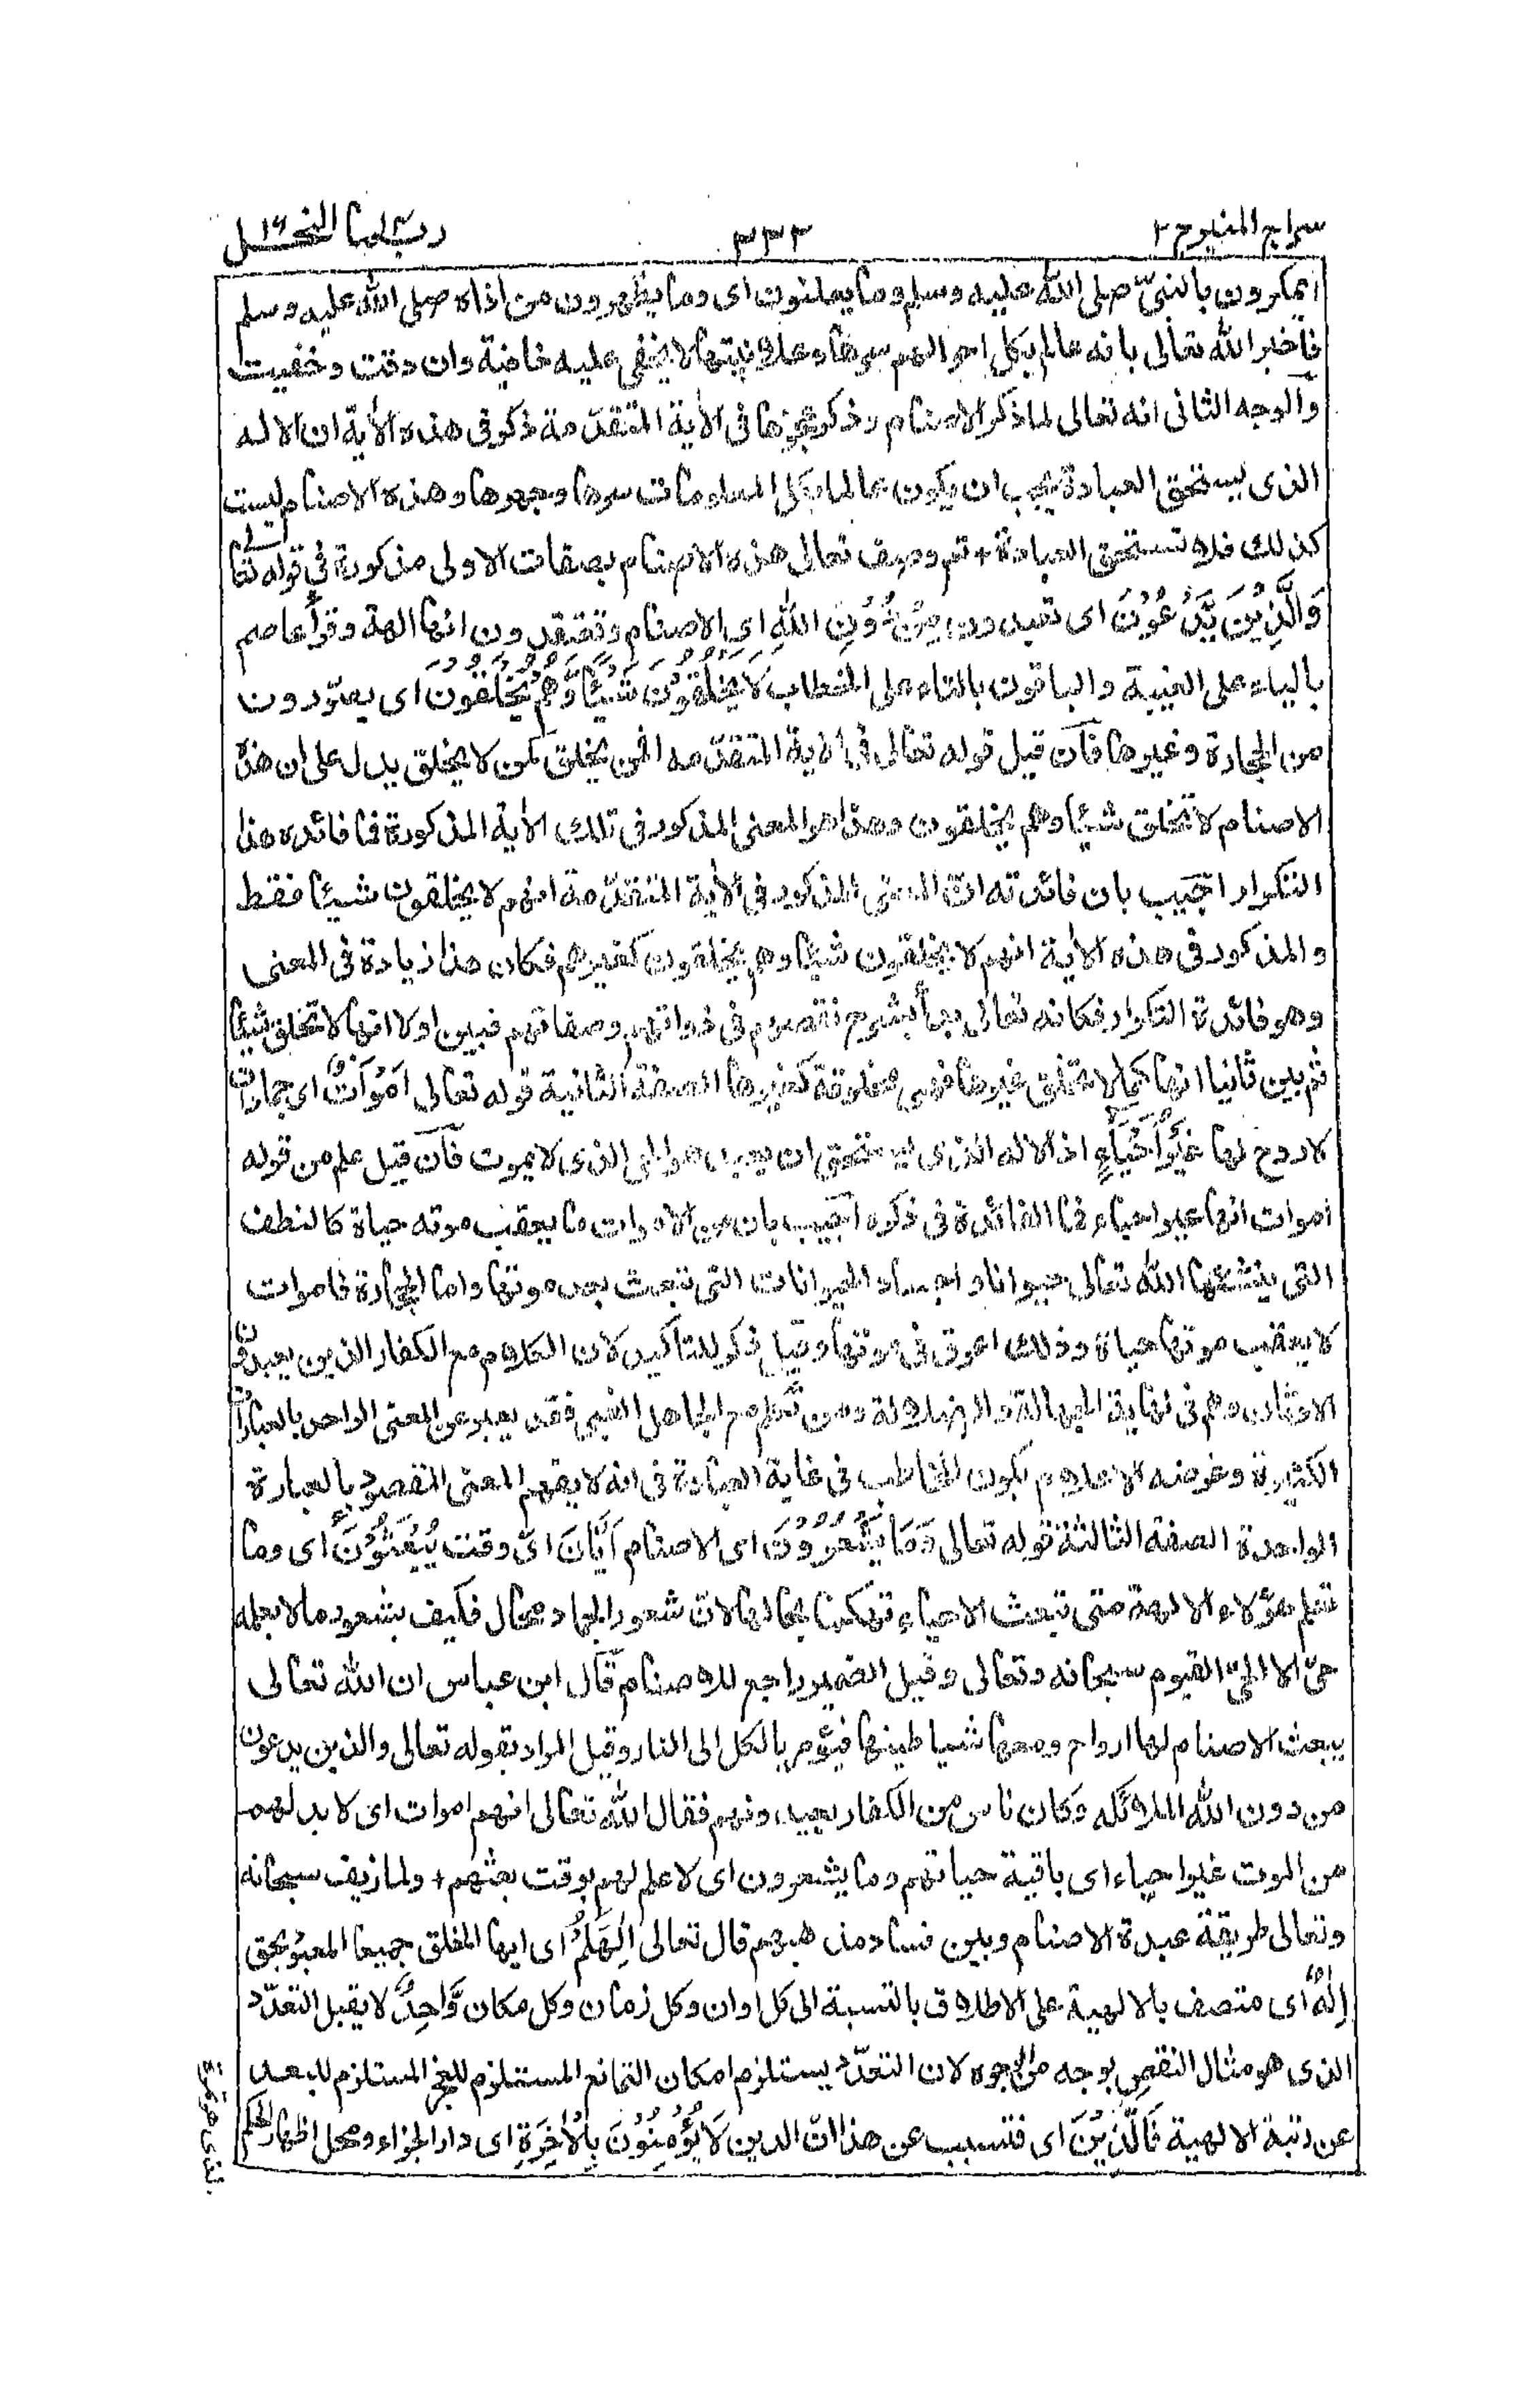 سراج المنير ج ٢
٣٣٣
ربما النحل
يمكرون بالنبىّ صلى الله عليه وسلم وما يعلنون اى وما يظهرون من اذاه صلى الله عليه وسلم
فاخبر الله تعالى بانه عالم بكل احوالهم سرها وعلانيتها لا يخفى عليه خافية وان دقت وخفيت
والوجه الثانى انه تعالى لما ذكر الاصنام وذكر عجزها فى الاٰية المتقدّمة ذكر فى هذه الاٰية ان الاله
الذى يستحق العبادة يجب ان يكون عالما بكل المعلومات سرها وجهرها وهذه الاصنام ليست
كذلك فلا تستحق العبادة + ثم وصف تعالى هذه الاصنام بصفات الاولى مذكورة فى قوله تعالى
وَالَّذِيْنَ يَدْعُوْنَ اى تعبدون مِنْ دُوْنِ اللّٰهِ اى الاصنام وتعتقدون انها الهة وقرأ عاصم
بالياء على الغيبة والباقون بالتاء على الخطاب لَا يَخْلُقُوْنَ شَيْئًا وَّهُمْ يُخْلَقُوْنَ اى يصوّرون
من الحجارة وغيرها فان قيل قوله تعالى فى الاية المتقدّمه افمن يخلق كمن لا يخلق يدل على ان هذه
الاصنام لا تخلق شيئا وهم يخلقون وهذا هو المعنى المذكور فى تلك الاٰية المذكورة فما فائده هذا
التكرار اجيب بان فائدته ان المعنى المذكور فى الاٰية المتقدّمة انهم لا يخلقون شيئا فقط
والمذكور فى هذه الاٰية انهم لا يخلقون شيئا وهم يخلقون كغيرهم فكان هذا زيادة فى المعنى
وهو فائدة التكرار فكانه تعالى بدأ بشرح نقصهم فى ذواتهم وصفاتهم فبين اولا انها لا تخلق شيئا
ثم بين ثانيا انها كما لا تخلق غيرها فهى مخلوقة كغيرها الصفة الثانية قوله تعالى اَمْوَاتٌ اى جمادات
لا روح لها غَيْرُ اَحْيَاءٍ اذ الاله الذى يستحق ان يعبد هو الحى الذى لا يموت فان قيل علم من قوله
اموات انها غير احياء فما الفائدة فى ذكره اجيب بان من الاموات ما يعقب موته حياة كالنطف
التى ينشئها الله تعالى حيوانا واجساد الحيوانات التى تبعث بعد موتها واما الحجارة فاموات
لا يعقب موتها حياة وذلك اعرق فى موتها وقيل ذكر للتاكيد لان الكلام مع الكفار الذين يعبدون
الاوثان وهم فى نهاية الجهالة والضلالة ومن تكلم مع الجاهل الغبى فقد يعبر عن المعنى الواحد بالعبارات
الكثيرة وغرضه الاعلام بكون المخاطب فى غاية الغباوة فى انه لا يفهم المعنى المقصود بالعبارة
الواحدة الصفة الثالثة قوله تعالى وَمَا يَشْعُرُوْنَ اى الاصنام اَيَّانَ اىّ وقت يُبْعَثُوْنَ اى وما
تعلم هؤلاء الالهة متى تبعث الاحياء تهكما بحالها لان شعور الجماد محال فكيف بشعور ما لا يعلمه
حىّ الا الحىّ القيوم سبحانه وتعالى وقيل الضمير راجع للاصنام قال ابن عباس ان الله تعالى
يبعث الاصنام لها ارواح ومعها شياطينها فيؤمر بالكل الى النار وقيل المراد بقوله تعالى والذين يدعون
من دون الله الملائكة وكان ناس من الكفار يعبدونهم فقال الله تعالى انهم اموات اى لا بد لهم
من الموت غير احياء اى باقية حياتهم وما يشعرون اى لا علم لهم بوقت بعثهم + ولما زيف سبحانه
وتعالى طريقة عبدة الاصنام وبين فساد مذهبهم قال تعالى اِلٰهُكُمْ اى ايها الخلق جميعا المعبود بحق
اِلٰهٌ اى متصف بالالهية على الاطلاق بالنسبة الى كل اوان وكل زمان وكل مكان وَّاحِدٌ لا يقبل التعدّد
الذى هو مثال النقص بوجه من الوجوه لان التعدّد يستلزم امكان التمانع المستلزم للعجز المستلزم للبعد
عن رتبة الالهية فَالَّذِيْنَ اى فتسبب عن هذا انّ الذين لَا يُؤْمِنُوْنَ بِالْاٰخِرَةِ اى دار الجزاء ومحل اظهار الحكم